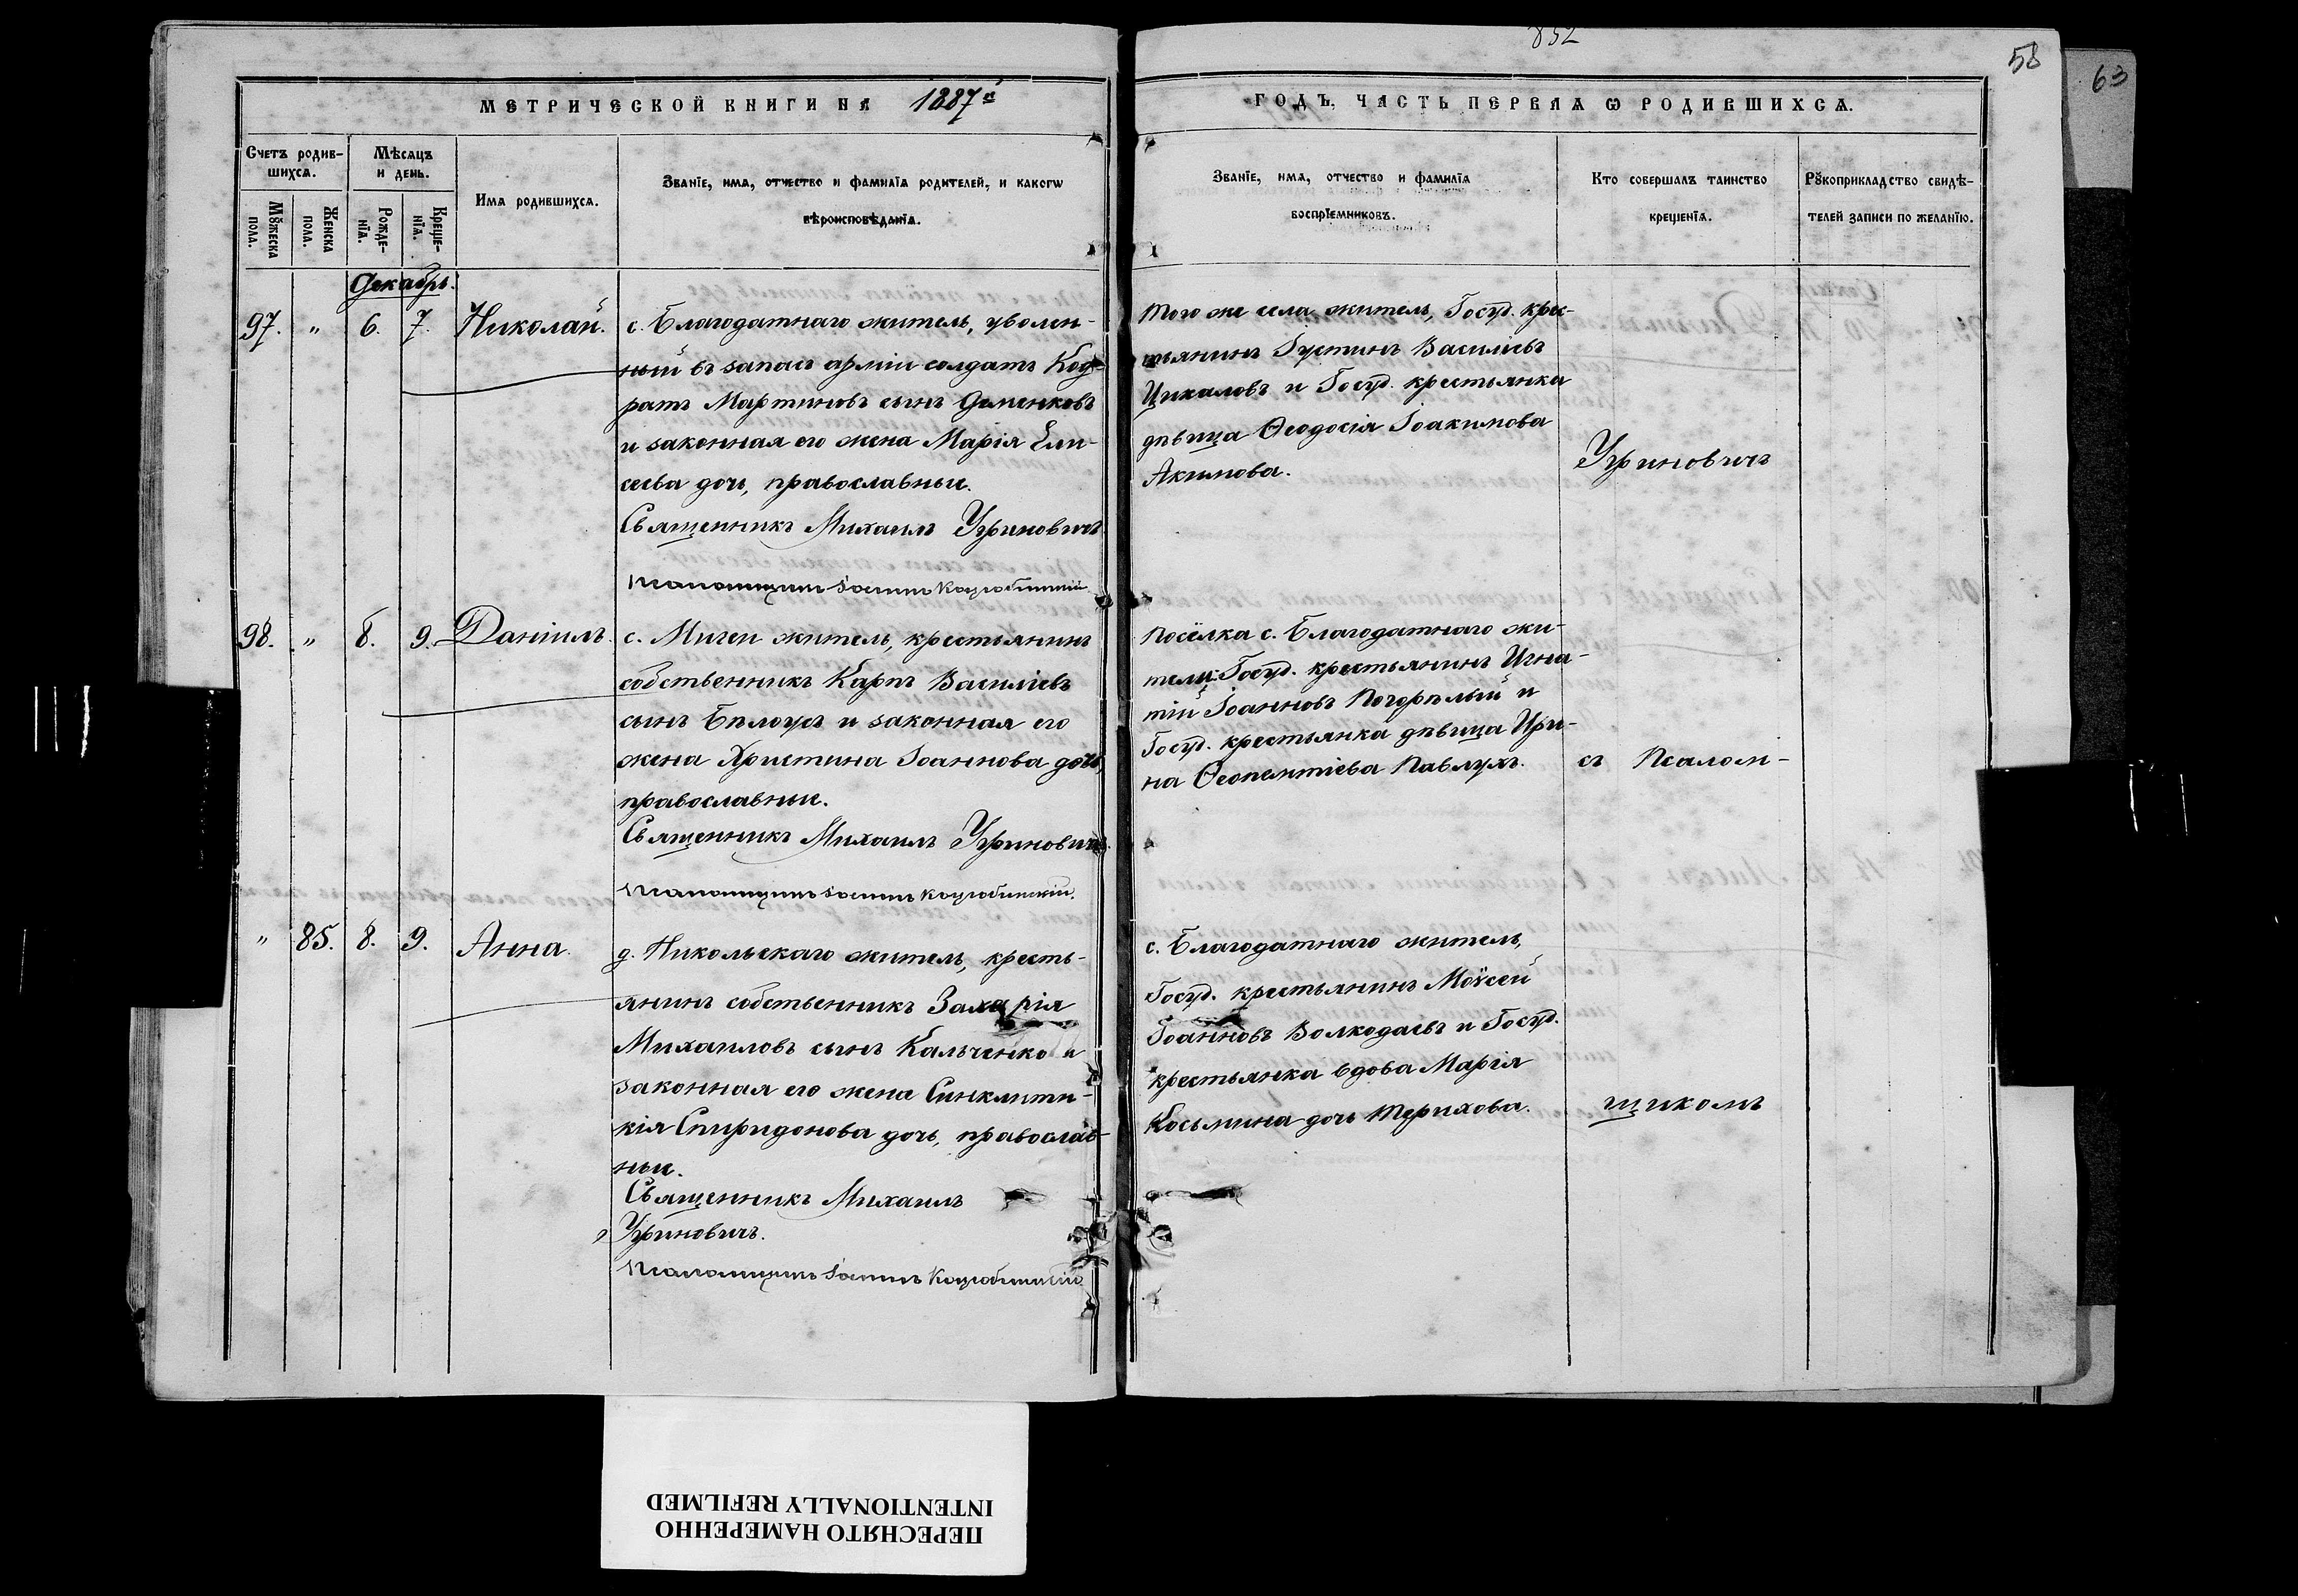 852
58
63
МЕТРИЧЕСКОЙ КНИГИ НА 1887й
ГОДЪ, ЧАСТЬ ПЕРВАЯ Ѡ РОДИВШИХСѦ.
Счетъ родив-
шихсѧ.
Мѣсяцъ
и день.
Мꙋжеска
пола.
Женска
пола.
Рожде-
нїя.
Креще-
нїя.
Имѧ родившихсѧ.
Званїе, имѧ, отчество и фамилїѧ родителей, и какогѡ
вѣроисповѣданїѧ.
Званїе, имѧ, отчество и фамилїѧ
воспрїемниковъ.
Кто совершалъ таинство
крещенїѧ.
Рꙋкоприкладство свидѣ-
телей записи по желанїю.
Декабрь.
97. " 6. 7. Николай.
с. Благодатнаго житель, уволен-
ный въ запасъ арміи солдатъ Код-
ратъ Мартиновъ сынъ Деменковъ
и законная его жена Марія Ели-
сеева дочь, православные.
Священникъ Михаилъ Угриновичъ
Псаломщикъ Іоаннъ Коцюбинскій
Того же села житель, Госуд. крес-
тьянинъ Іустинъ Василіевъ
Цикаловъ и Госуд. крестьянка
дѣвица Ѳеодосія Іоакимова
Акимова.
Угриновичъ
98. " 8. 9. Даніилъ.
с. Мигеи житель, крестьянинъ
собственникъ Карпъ Василіевъ
сынъ Бѣлоусъ и законная его
жена Христина Іоаннова дочь,
православные.
Священникъ Михаилъ Угриновичъ.
Псаломщикъ Іоаннъ Коцюбинскій.
Посёлка с. Благодатнаго жи-
тели: Госуд. крестьянинъ Игна-
тій Іоанновъ Погорѣлый и
Госуд. крестьянка дѣвица Ири-
на Ѳеопемптіева Павлухъ.
съ Псалом-
" 85. 8. 9. Анна.
д. Никольскаго житель, кресть-
янинъ собственникъ Захарія
Михаиловъ сынъ Кальченко и
законная его жена Синклити-
кія Спиридонова дочь, православ-
ные.
Священникъ Михаилъ
Угриновичъ.
Псаломщикъ Іоаннъ Коцюбинскій
с. Благодатнаго житель,
Госуд. крестьянинъ Моѵсей
Іоанновъ Волкодаевъ и Госуд.
крестьянка вдова Марія
Косьмина дочь Терихова.
щикомъ
ПЕРЕСНЯТО НАМЕРЕННО
INTENTIONALLY REFILMED